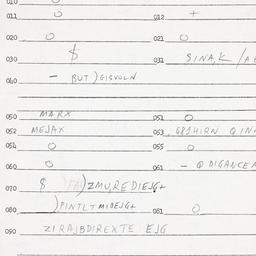 010 O
011 O 012 +
020 O 021 O
030 $ 031 SINA,K / A
040 - BUT)GISVOLN
050 MARX 051 O
052 MEJAX 053 Q IN
054 O 055 O
060 O 061 - Q DIGANCE
070 $ )ZMU,REDIEJG+
080 )PINTL+MIDEJG+ 081 O
090 ZIRAJBDIREXTE EJG